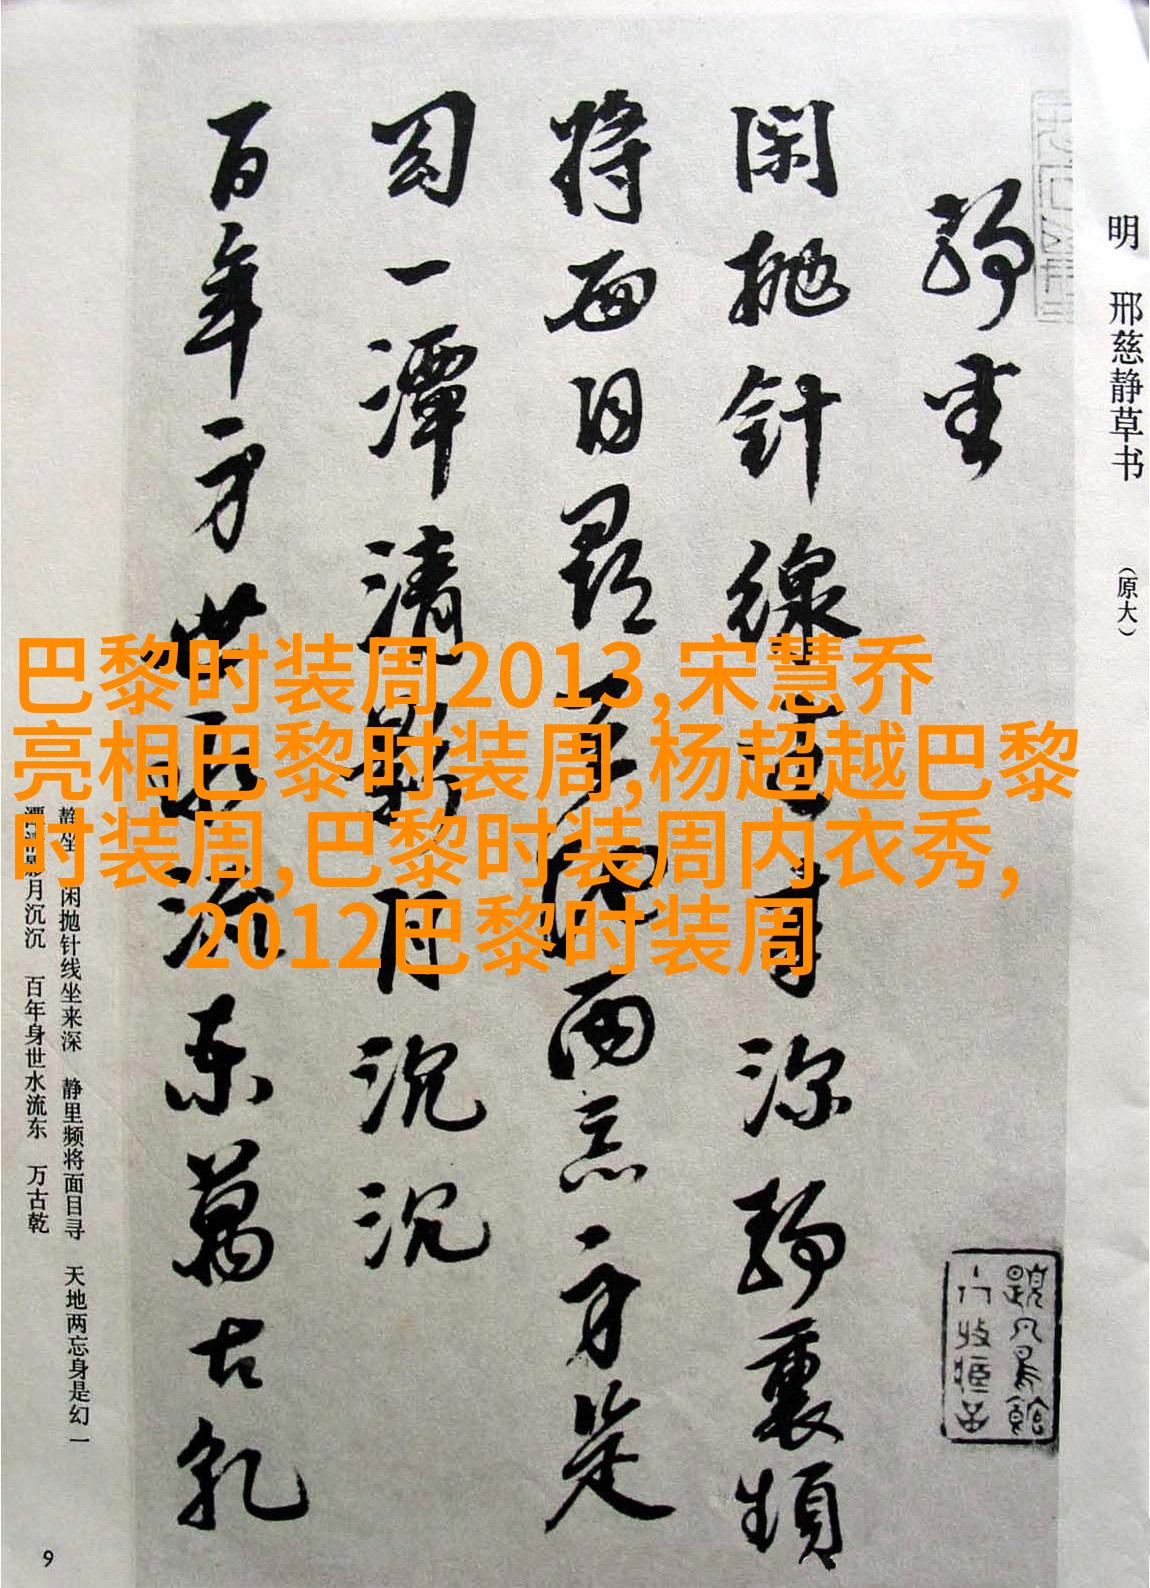 明 邢慈静草书 （原大）
靜坐
閑拋針線坐来深靜裏頻
將面目尋天地兩忘身是
幻一潭清影月沉沉
百年身世水流東萬古乾
巴黎时装周2013,宋慧乔
亮相巴黎时装周,杨超越巴黎
时装周,巴黎时装周内衣秀,
2012巴黎时装周
静坐 闲抛针线坐来深 静里频将面目寻 天地两忘身是幻 一
潭清影月沉沉 百年身世水流东 万古乾
9